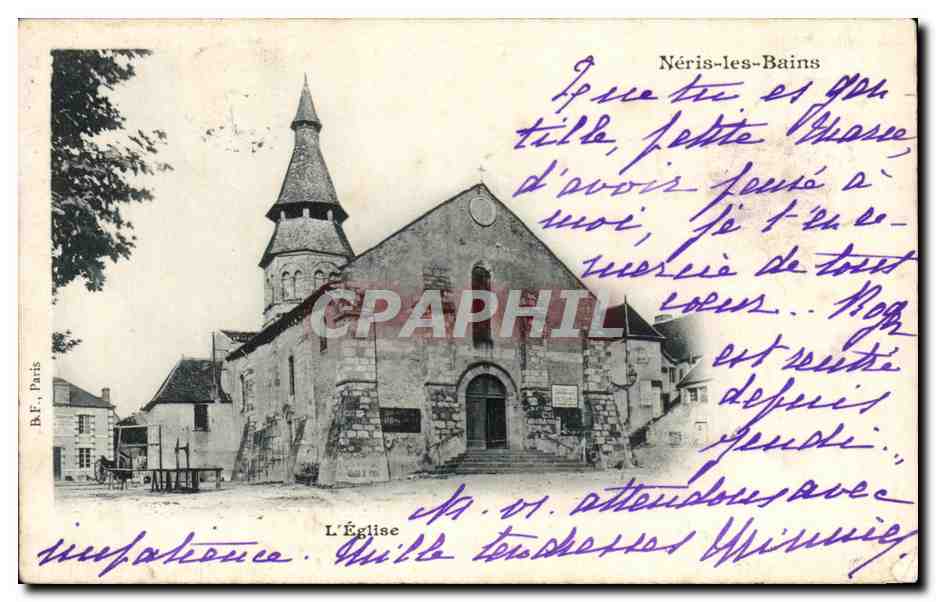 Néris-les-Bains
Que tu es gen
tille, petite Marie,
d'avoir pensé à
moi, je t'en re-
mercie de tout
cœur.. Roger
est rentré
depuis
jeudi..
N. vs. attendons avec
impatience. Mille tendresses
L'Église
B.F., Paris
CPARAMA
CPAPHIL